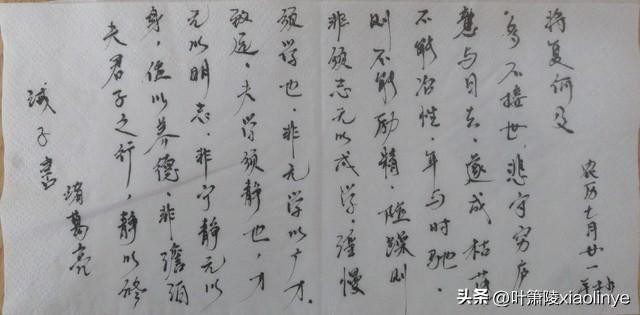 诫子書
诸葛亮
夫君子之行,静以修
身,俭以养德,非澹泊
无以明志,非宁静无以
致远,夫学须静也,才
须学也,非无学以广才,
非须志无以成学,淫慢
则不能励精,险躁则
不能冶性,年与时驰,
意与日去,遂成枯落
多不接世,悲守穷庐
将复何及
农历七月廿一
头条 @叶箫陵xiaolinye